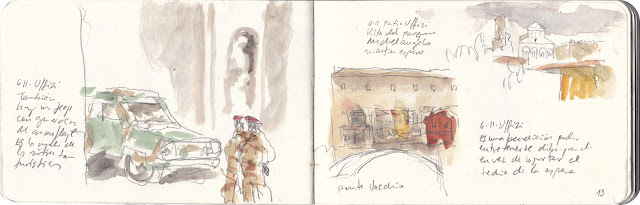 6·11· Uffizi
También
hay un jeep
con guardias
de camuflaje
Es lo malo de
los sitios tan
turísticos
6·11 Patio Uffizi
Vista del parque
Michelangelo
mientras espero
ponte Vecchio
6·11· Uffizi
Es una bendición poder
entretenerse dibujando
en vez de soportar el
tedio de la espera
13